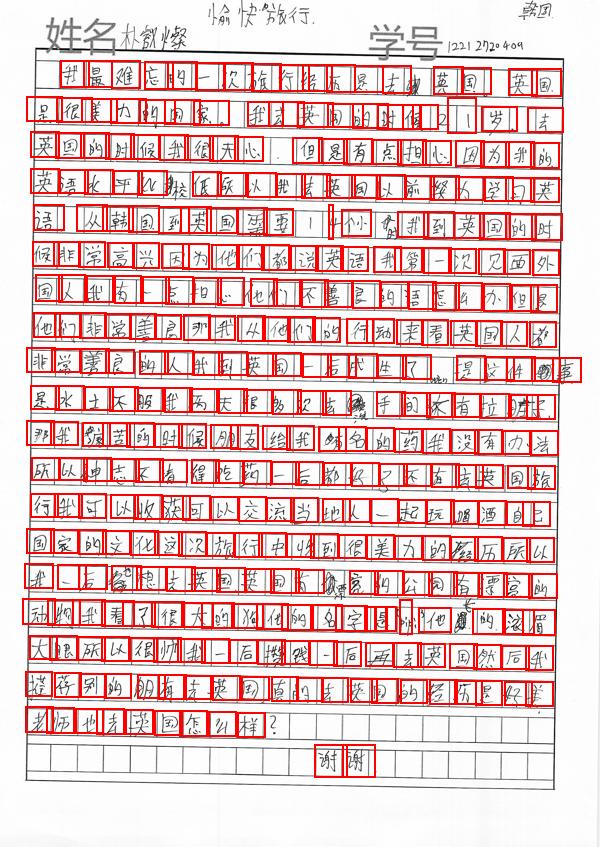 愉快旅行. 韩国
姓名 朴 灿 学号 12212720409
我最难忘的一次旅行经历是去 英国. 英国
是很美力的国家. 我去英国的时候21岁. 去
英国的时候我很开心. 但是有点担心因为我的
英语水平比较低所以我去英国以前努力学习英
语 从韩国到英国需要14个小时我到英国的时
候非常高兴因为他们都说英语我第一次见面外
国人我有一点担心他们不善良的话怎么办但是
他们非常善良那我从他们的行动来看英国人都
非常善良的人我到英国一后成生了 是这件事
是水土不服我两天很多次去洗手间还有拉肚子
那我 苦的时候朋友给我 名的药我没有办法
所以 不有得吃药一后都好了还有去英国旅
行我可以收获可以交流当地人一起玩喝酒自己
国家的文化这次旅行中收到很美力的经历所以
我一后 想去英国英国有漂亮的公园有漂亮的
动物我看了很大的狗他的名字是 他 的浓眉
大眼所以很帅我一后攒钱一后再去英国然后我
推荐别的朋有去英国真的去英国的经历是好美
老师也去英国怎么样?
谢谢